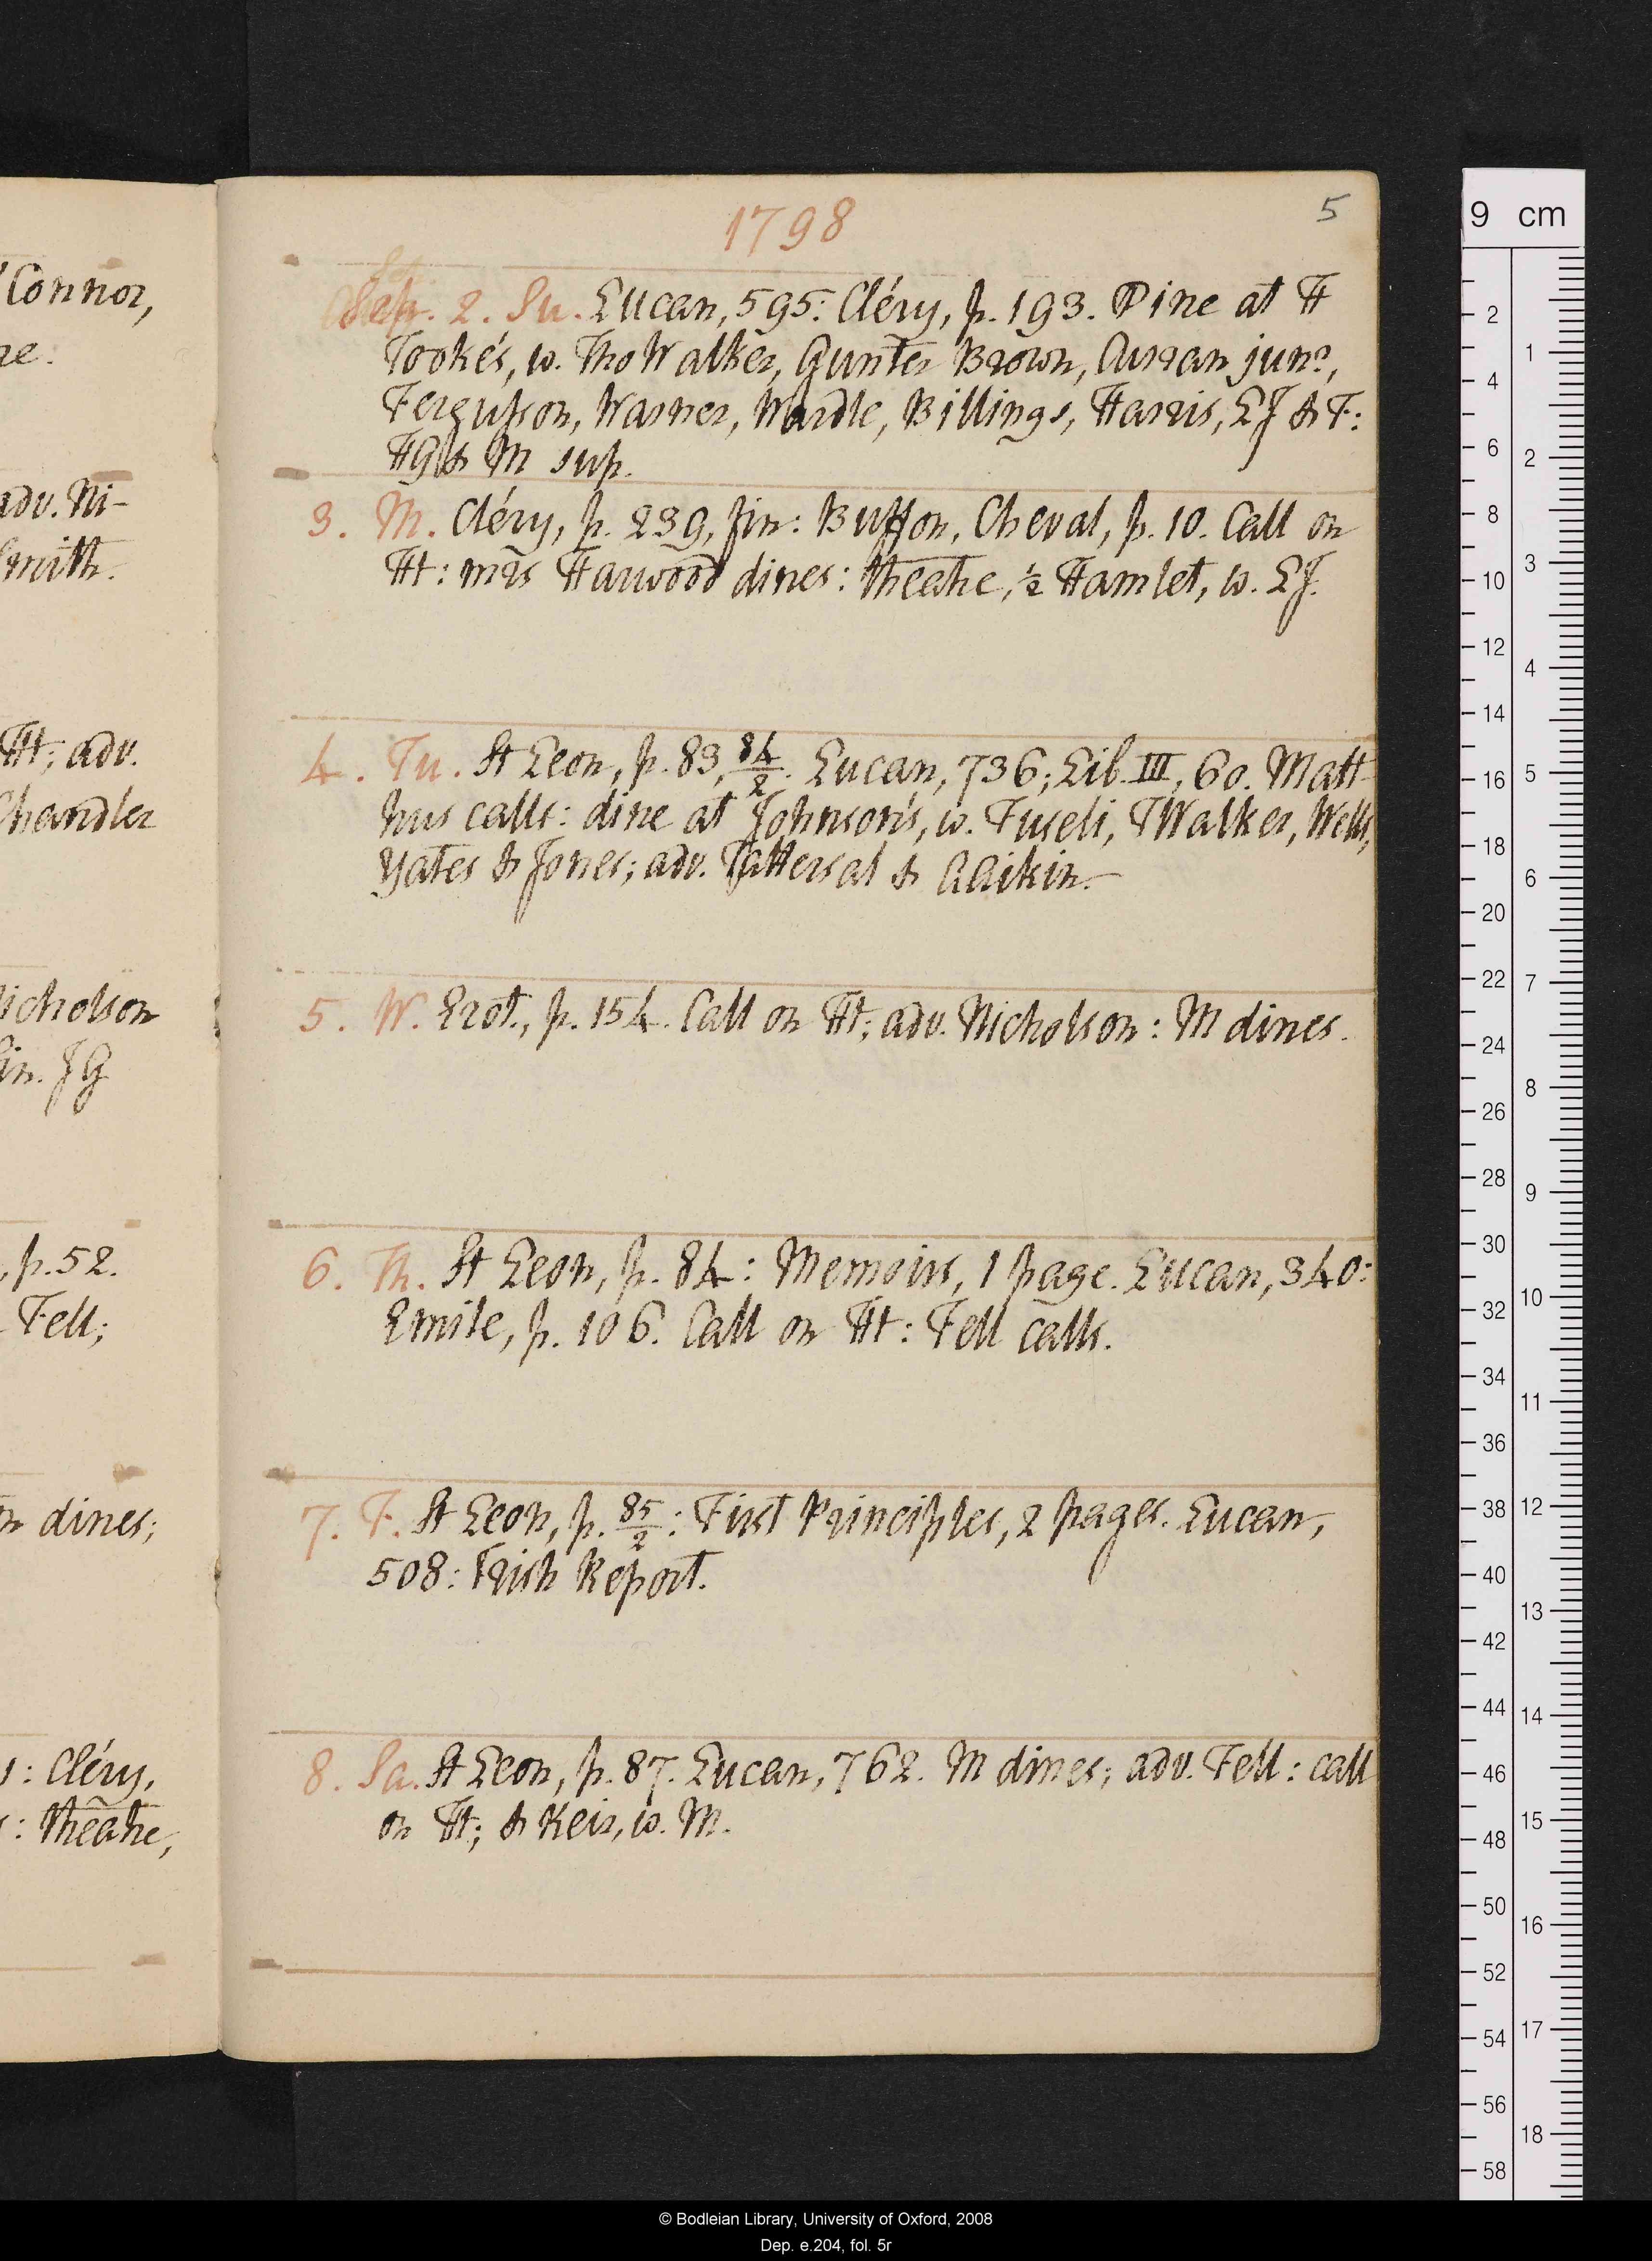 Connor,
ne.
adv. Ni-
Smith.
Ht; adv.
Chandler
Nicholson
in. JG
, p. 52.
Fell;
dines;
: Cléry,
: theatre,
1798
5
Sep. 2. Su. Lucan, 595: Cléry, p. 193. Dine at H
Tooke's, w. Tho Walker, Gunter Brown, Curran junr,
Fergusson, Warner, Wardle, Billings, Harris, LJ & F:
HG & M sup.
3. M. Cléry, p. 239, fin: Buffon, Cheval, p. 10. Call on
Ht: mrs Harwood dines: theatre, ½ Hamlet, w. LJ.
4. Tu. St Leon, p. 83, 84/2. Lucan, 736; Lib. III, 60. Matt-
hus calls: dine at Johnson's, w. Fuseli, TWalker, Wells,
Yates & Jones; adv. Tattersal & AAikin.
5. W. Erot., p. 154. Call on Ht; adv. Nicholson: M dines.
6. Th. St Leon, p. 84: Memoirs, 1 page. Lucan, 340:
Emile, p. 106. Call on Ht: Fell calls.
7. F. St Leon, p. 85/2: First Principles, 2 pages. Lucan,
508: Irish Report.
8. Sa. St Leon, p. 87. Lucan, 762. M dines; adv. Fell: call
on Ht; & Keir, w. M.
9 cm
2
4
6
8
10
12
14
16
18
20
22
24
26
28
30
32
34
36
38
40
42
44
46
48
50
52
54
56
58
1
2
3
4
5
6
7
8
9
10
11
12
13
14
15
16
17
18
© Bodleian Library, University of Oxford, 2008
Dep. e.204, fol. 5r